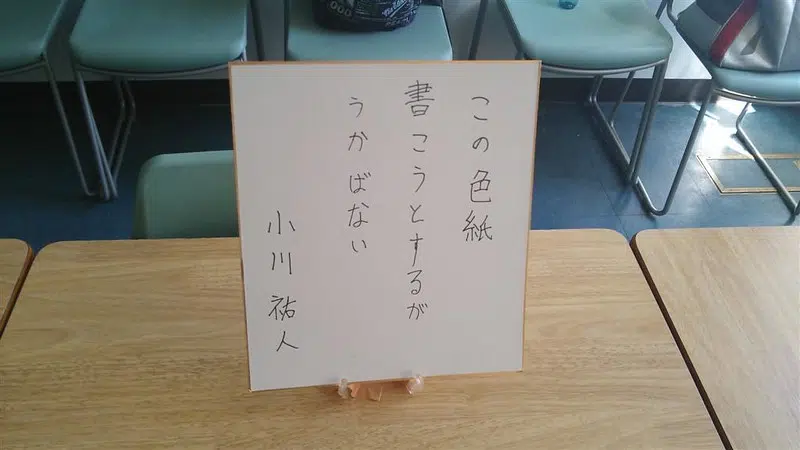 この色紙
書こうとするが
うかばない
小川祐人